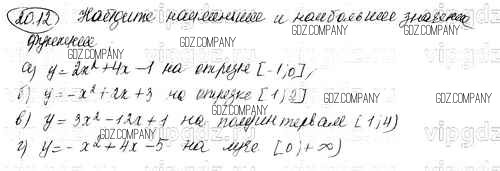 20.12 Найдите наименьшее и наибольшее значения
функции
GDZ.COMPANY GDZ.COMPANY GDZ.COMPANY
а) y = 2x² + 4x - 1 на отрезке [-1; 0];
б) y = -x² + 2x + 3 на отрезке [1; 3]
GDZ.COMPANY GDZ.COMPANY
в) y = 3x² - 12x + 1 на полуинтервале [1; 4)
GDZ.COMPANY GDZ.COMPANY
г) y = -x² + 4x - 5 на луче [0; +∞)
vipgdz